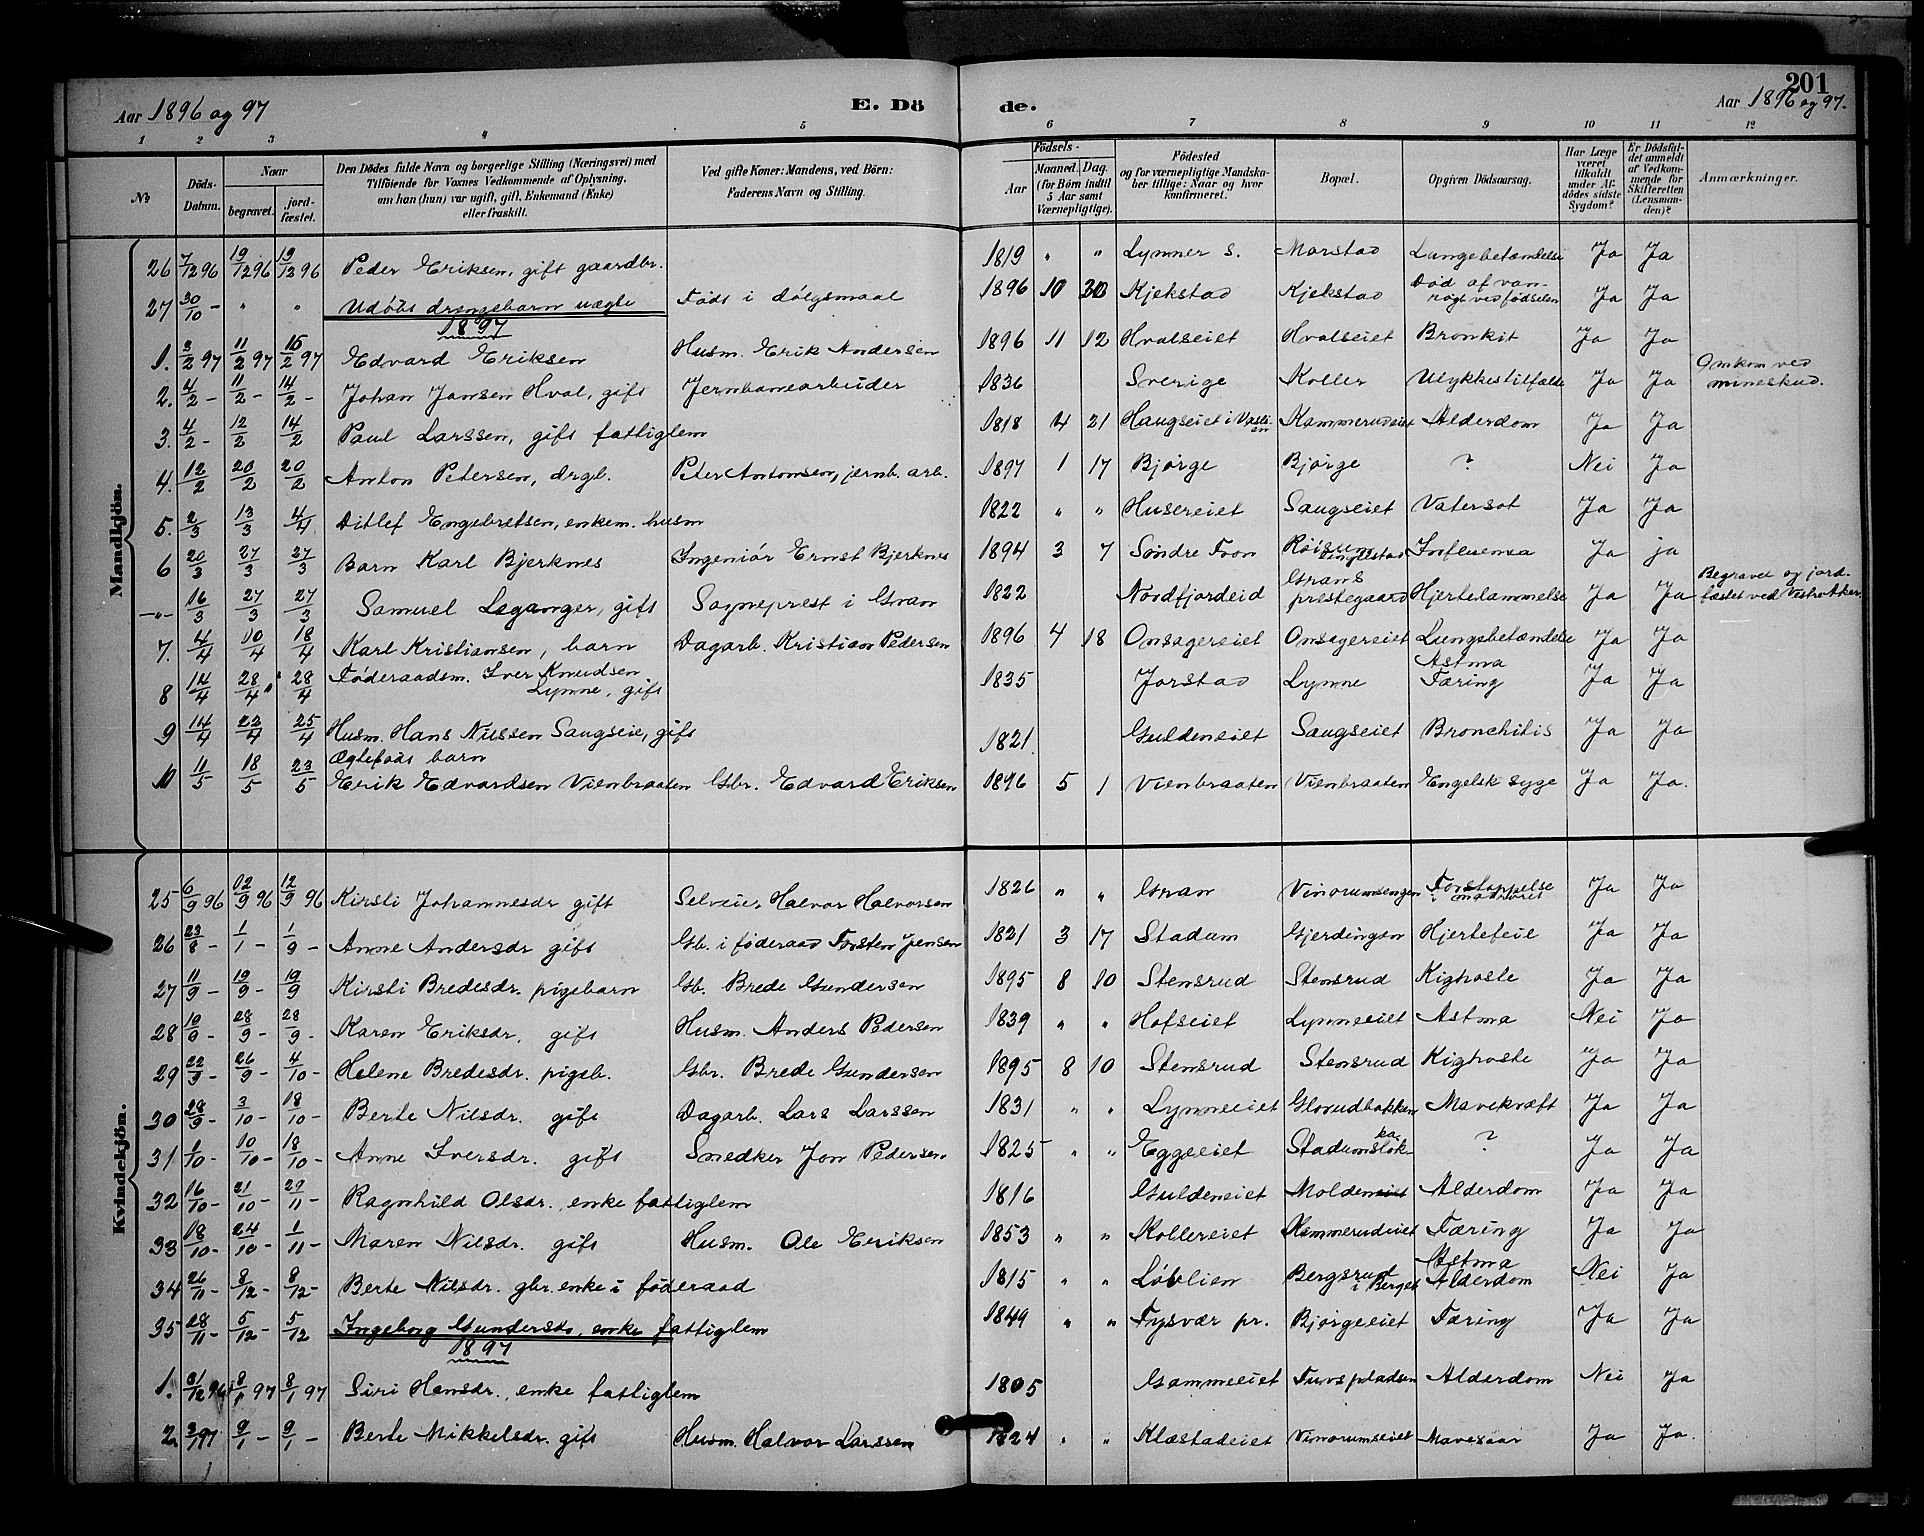 201
Aar 1896 og 97
E. Dö
de.
Aar 1896 og 97.
1 2 3 4 5 6 7 8 9 10 11 12
№
Döds-Datum.
Naar
begravet.
jord-fæstet.
Den Dödes fulde Navn og borgerlige Stilling (Næringsvei) med
Tilföiende for Voxnes Vedkommende af Oplysning,
om han (hun) var ugift, gift, Enkemand (Enke)
eller fraskilt.
Ved gifte Koner: Mandens, ved Börn:
Faderens Navn og Stilling.
Födsels-
Aar
Maaned. Dag.
(for Börn indtil
5 Aar samt
Værnepligtige).
Födested
og for værnepligtige Mandska-
ber tillige: Naar og hvor
konfirmeret.
Bopæl.
Opgiven Dödsaarsag.
Har Læge
været
tilkaldt
under Af-
dödes sidste
Sygdom?
Er Dödsfal-
det anmeldt
af Vedkom-
mende for
Skifteretten
(Lensman-
den)?
Anmærkninger.
Mandkjön.
26 7/12 96 19/12 96 19/12 96 Peder Eriksen, gift gaardbr. 1819 " " Lynner s. Morstad Lungebetændelse Ja Ja
27 30/10 - " " Udøbt drengebarn uægte Født i dølgsmaal 1896 10 30 Kjekstad Kjekstad Død af van-
røgt ved fødselen Ja Ja
1897
1. 3/2 97 11/2 97 15/2 97 Edvard Eriksen Husm. Erik Andersen 1896 11 12 Hvalseiet Hvalseiet Bronkit Ja Ja
2. 4/2 - 11/2 - 14/2 - Johan Jansen Hval, gift Jernbanearbeider 1836 Sverige Koller Ulykkestilfælde Ja Ja Omkom ved
mineskud.
3. 4/2 - 12/2 14/2 Paul Larssen, gift fattiglem 1818 4 21 Haugseiet i Kammerudeiet Alderdom Ja Ja
4. 12/2 20/2 20/2 Anton Petersen, drgb. Peter Antonsen, jernb. arb. 1897 1 17 Bjørge Bjørge ? Nei Ja
5. 2/3 13/3 4/4 Ditlef Engebretsen, enkem. husm 1822 " " Husereiet Saugseiet Vatersot Ja Ja
6 20/3 27/3 27/3 Barn Karl Bjerknes Ingeniør Ernst Bjerknes 1894 3 7 Søndre Fron Røisum Influensa Ja ja
-"- 16/3 27/3 27/3 Samuel Leganger, gift Sogneprest i Gran 1822 Nordfjordeid Grans
prestegaard Hjertelammelse Ja Ja Begravet og jord-
fæstet ved Vestre Aker.
7. 4/4 10/4 18/4 Karl Kristiansen, barn Dagarb. Kristian Pedersen 1896 4 18 Onsagereiet Onsagereiet Lungebetændelse Ja Ja
8 14/4 28/4 28/4 Føderaadsm. Iver Knudsen
Lynne, gift 1835 Jorstad Lynne Astma
Tæring Ja Ja
9 14/4 22/4 25/4 Husm. Hans Nilssen Saugseie, gift 1821. Guldeneiet Saugseiet Bronchitis Ja Ja
Ægtefødt barn
10 11/5 18/5 23/5 Erik Edvardsen Vienbraaten Gbr. Edvard Eriksen 1896 5 1 Vienbraaten Vienbraaten Engelsk syge Ja Ja.
Kvindekjön.
25 6/9 96 12/9 96 12/9 96 Kirsti Johannesdr gift Selveier Halvor Halvorsen 1826 " " Gran Vinorumsengen Forstoppelse
Ja Ja
26 23/8 - 1/1 - 1/9 - Anne Andersdr gift Gb. i føderaad Torsten Jensen 1821 3 17 Stadum Gjerdingen Hjertefeil Ja Ja
27 11/9 - 19/9 - 19/9 Kirsti Bredesdr. pigebarn Gb. Brede Gundersen 1895 8 10 Stensrud Stensrud Kighoste Ja Ja
28 19/9 - 28/9 - 28/9 - Karen Eriksdr. gift Husm. Anders Pedersen 1839 " " Hofseiet Lynneeiet Astma Nei Ja
29 22/9 - 26/9 - 4/10 - Helene Bredesdr. pigeb. Gbr. Brede Gundersen 1895 8 10 Stensrud Stensrud Kighoste Ja Ja
30 28/9 - 3/10 - 18/10 - Berte Nilsdr. gift Dagarb. Lars Larssen 1831 " " Lynneeiet Glorudbakken Mavekræft Ja Ja
31 1/10 - 10/10 - 18/10 - Anne Iversdr. gift Snedker Jon Pedersen 1825 " " Eggeeiet Stadumsløkka ? Ja Ja
32 16/10 - 21/10 - 29/11 - Ragnhild Olsdr., enke fattiglem 1816 Guldeneiet Moldeneiet Alderdom Ja Ja
33 18/10 - 24/10 - 1/11 - Maren Nilsdr. gift Husm. Ole Eriksen 1853 " " Kollereiet Kammerudeiet Tæring Ja Ja
34 26/11 - 8/12 - 8/12 - Berte Nilsdr. gbr. enke i føderaad 1815 " " Løvlien Bergsrud
i Berget Astma
Alderdom Nei Ja
35 28/11 - 5/12 - 5/12 Ingeborg Gundersdr., enke fattiglem 1849 " " Tysvær pr. Bjørgeeiet Tæring Ja Ja
1897
1. 31/12 96 8/1 97 8/1 97 Siri Hansdr., enke fattiglem 1805 Gammeeiet Tuvspladsen Alderdom Nei Ja
2. 3/1 97 9/1 - 9/1 - Berte Mikkelsdr. gift Husm. Halvor Larssen 1824 " " Klæstadeiet Vinorumseiet Mavesaar Ja Ja.